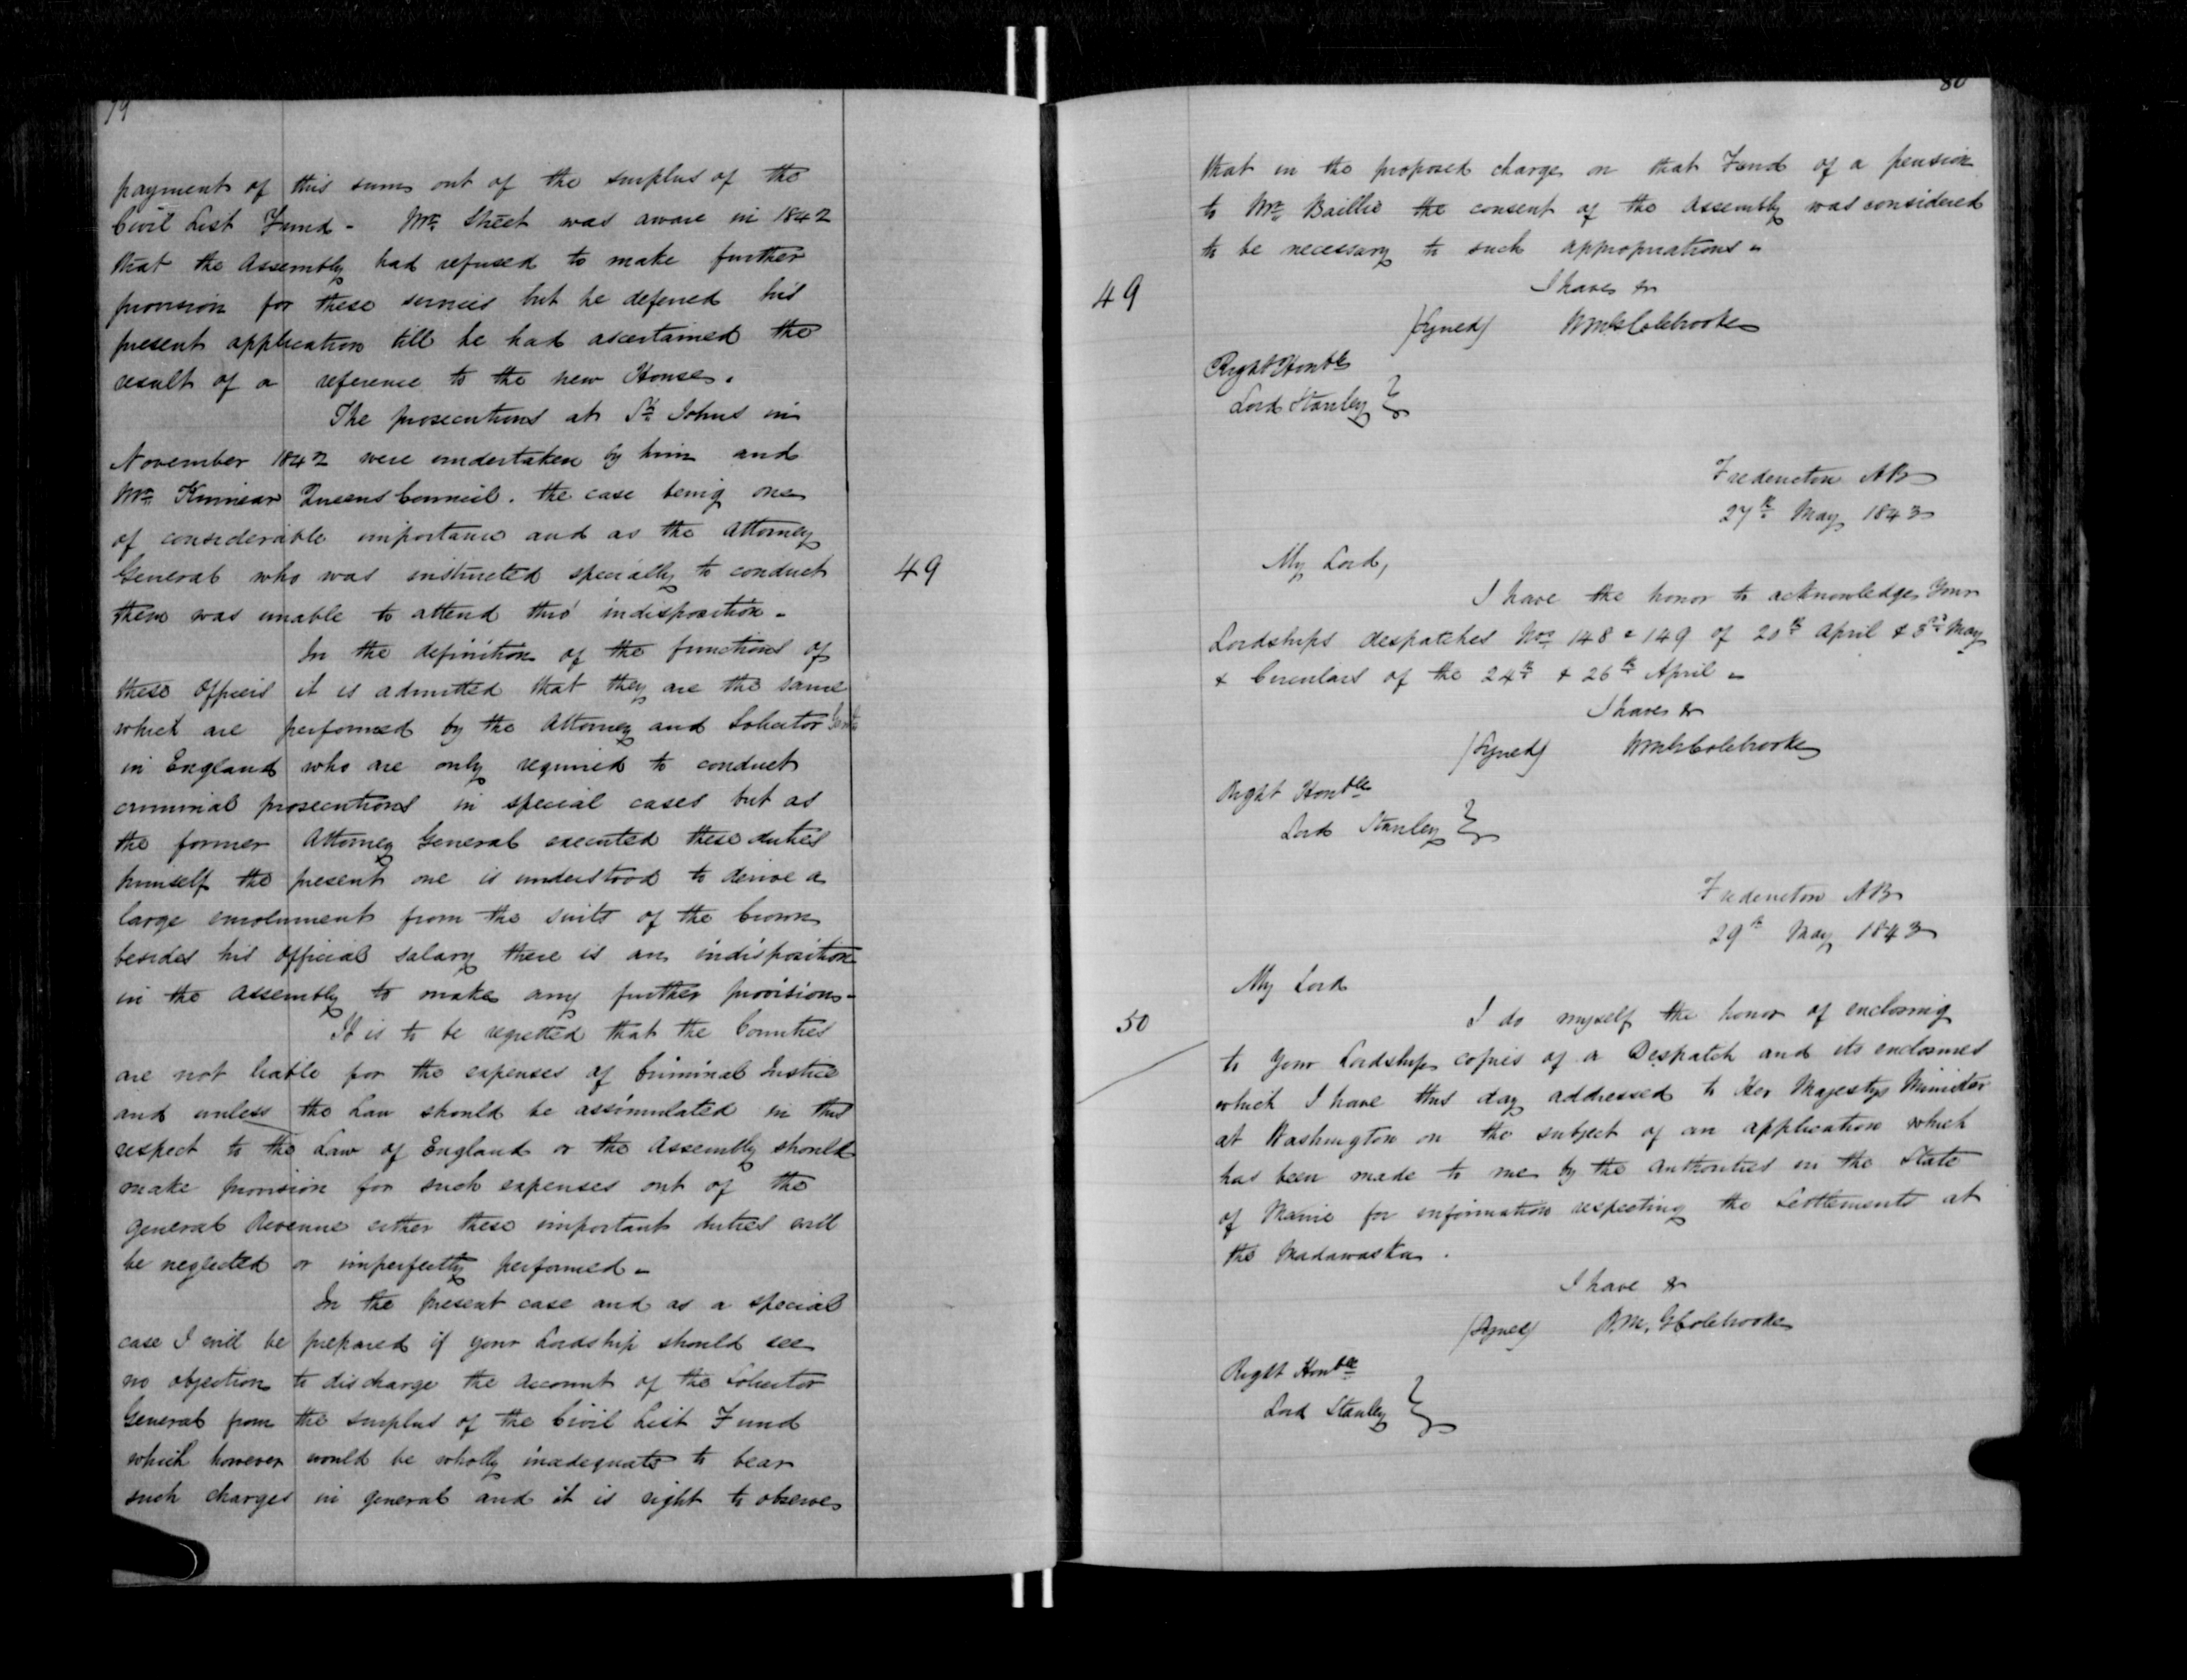 79
payment of this sum out of the surplus of the
Civil List Fund - Mr. Street was aware in 1842
that the Assembly had refused to make further
provision for these services but he deferred his
present application till he had ascertained the
result of a reference to the new House.
The prosecutions at St. Johns in
November 1842 were undertaken by him and
Mr. Kinnear Queens Council. the case being one
of considerable importance and as the Attorney
General who was instructed specially to conduct
49
them was unable to attend thro' indisposition -
In the definition of the functions of
these Officers it is admitted that they are the same
which are performed by the Attorney and Solicitor
in England who are only required to conduct
criminal prosecutions in special cases but as
the former Attorney General executed these duties
himself the present one is understood to derive a
large emolument from the suits of the Crown
besides his official salary there is an indisposition
in the Assembly to make any further provision -
It is to be regretted that the Counties
are not liable for the expenses of Criminal Justice
and unless the Law should be assimulated in this
respect to the Law of England or the Assembly should
make provision for such expenses out of the
general Revenue either these important duties will
be neglected or imperfectly performed -
In the present case and as a special
case I will be prepared if your Lordship should see
no objection to discharge the account of the Solicitor
General from the surplus of the Civil List Fund
which however would be wholly inadequate to bear
such charges in general and it is right to observe
80
that in the proposed charge on that Fund of a pension
to Mr. Baillie the consent of the Assembly was considered
to be necessary to such appropriations -
49
I have &c
(Signed) Wm G Colebrooke
Right Honble
Lord Stanley }
Fredericton NB
27th May 1843
My Lord,
I have the honor to acknowledge Your
Lordships despatches Nos. 148 & 149 of 20th April & 3rd May
& Circulars of the 24th & 26th April -
I have &c
(Signed) Wm G Colebrooke
Right Honble
Lord Stanley }
Fredericton NB
29th May 1843
My Lord
50
I do myself the honor of enclosing
to Your Lordship copies of a Despatch and its enclosures
which I have this day addressed to Her Majestys Minister
at Washington on the subject of an application which
has been made to me by the authorities in the State
of Maine for information respecting the Settlements at
the Madawaska.
I have &c
(Signed) W.M. G Colebrooke
Right Honble
Lord Stanley }